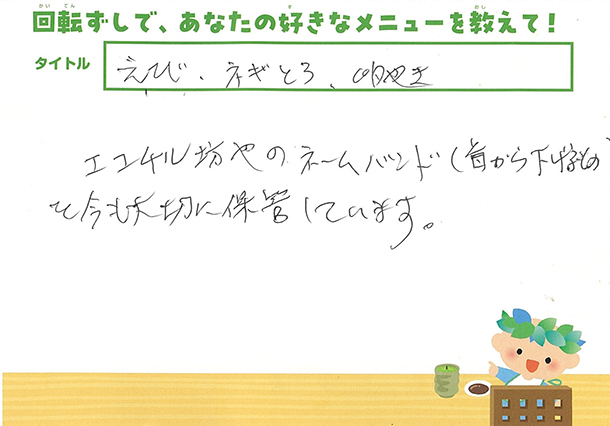 かい てん す おし
回転ずしで、あなたの好きなメニューを教えて!
タイトル
えび、ネギとろ、卵やき
エコチル坊やのネームバンド(首から下げるもの
を今も大切に保管しています。